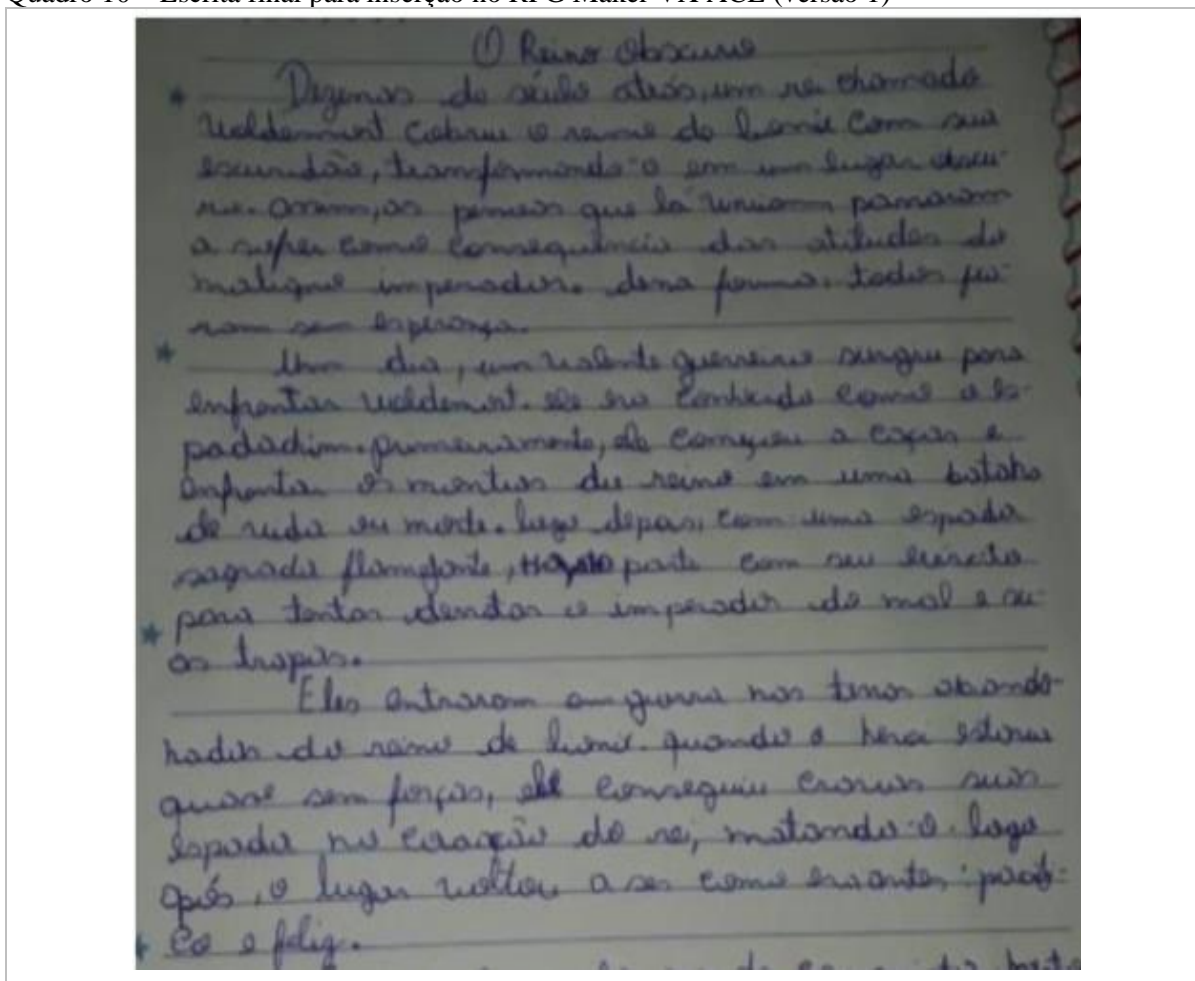 Quadro 16 – Escrita final para inserção no RPG Maker VX ACE (versão 1)
O Reino Obscuro
Dezenas de século atrás, um rei chamado
Voldemort cobriu o reino de com sua
escuridão, transformando-o em um lugar obscu-
ro. assim, as pessoas que lá viviam passaram
a sofrer como consequência das atitudes do
maligno imperador. dessa forma, todos fi-
ram sem esperança.
Um dia, um valente guerreiro surgiu para
enfrentar Voldemort. ele era conhecido como o es-
padachim. primeiramente, ele começou a caçar e
enfrentar os monstros do reino em uma batalha
de vida ou morte. logo depois, com uma espada
sagrada flamejante, parte com seu exército
para tentar derrotar o imperador do mal e su-
as tropas.
Eles entraram em guerra nas terras abando-
nadas do reino de quando o herói estava
quase sem forças, ele conseguiu cravar sua
espada no coração do rei, matando-o. logo
após, o lugar voltou a ser como era antes: pacífi-
co e feliz.